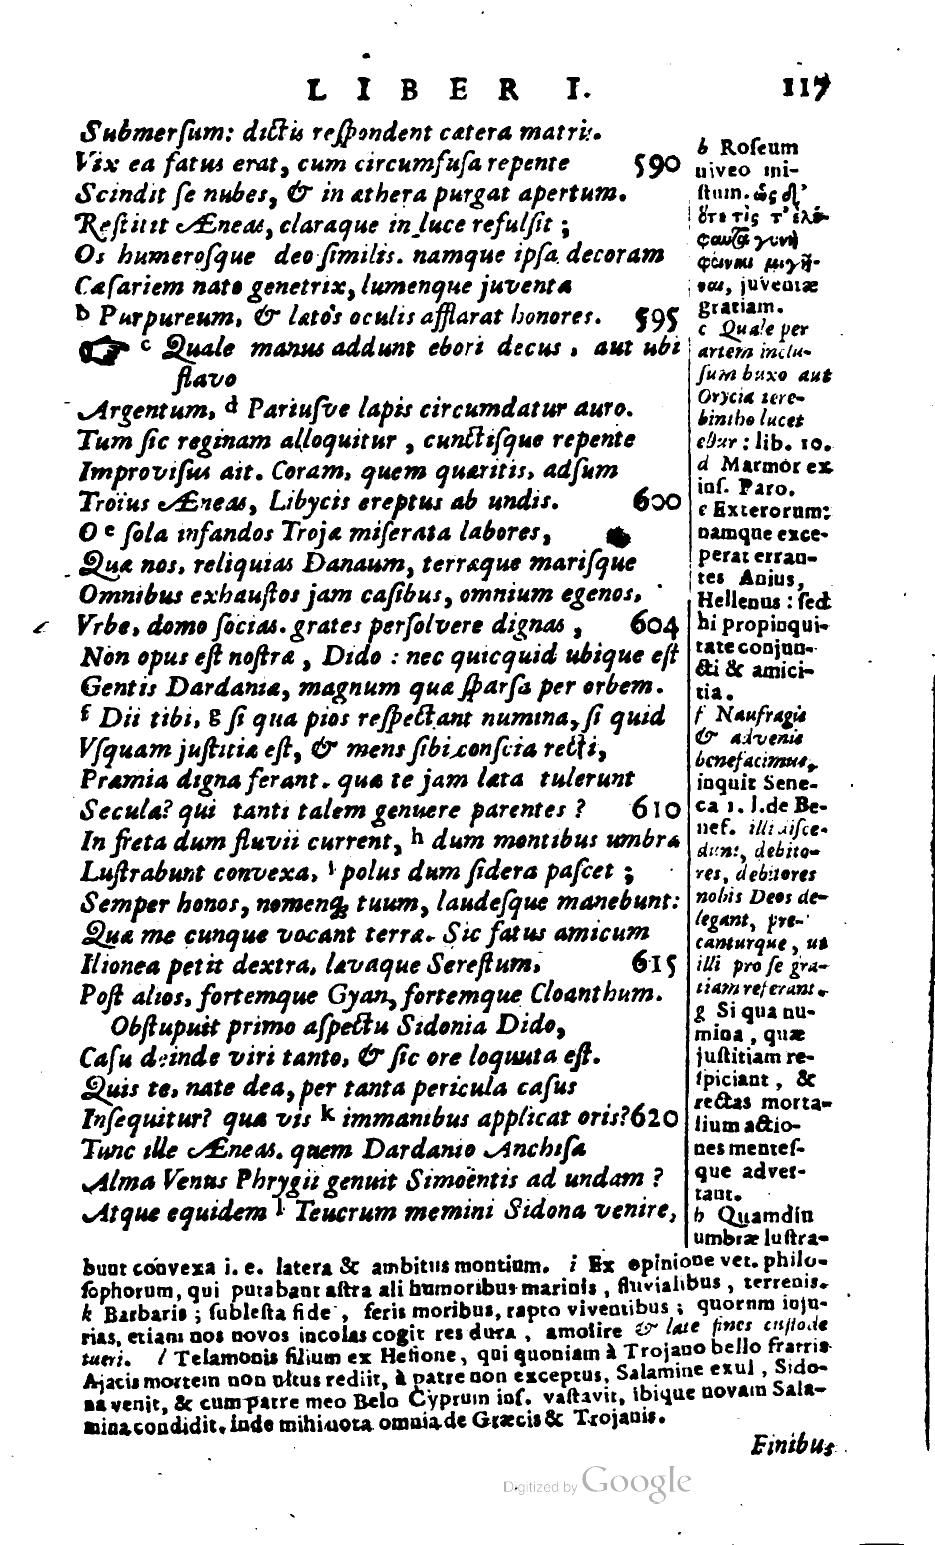 LIBER I. 117
Submersum: dictis respondent cætera matris.
Vix ea fatus erat, cum circumfusa repente 590
Scindit se nubes, & in æthera purgat apertum.
Restitit Æneas, claraque in luce refulsit ;
Os humerosque deo similis. namque ipsa decoram
Cæsariem nato genetrix, lumenque juventæ
b Purpureum, & lætos oculis afflarat honores. 595
☞ c Quale manus addunt ebori decus , aut ubi
flavo
Argentum, d Pariusve lapis circumdatur auro.
Tum sic reginam alloquitur , cunctisque repente
Improvisus ait. Coram, quem quæritis, adsum
Troïus Æneas, Libycis ereptus ab undis. 600
O e sola infandos Trojæ miserata labores,
Quæ nos, reliquias Danaum, terræque marisque
Omnibus exhaustos jam casibus, omnium egenos,
Vrbe, domo socias. grates persolvere dignas , 604
Non opus est nostræ , Dido : nec quicquid ubique est
Gentis Dardaniæ, magnum quæ sparsa per orbem.
f Dii tibi, g si qua pios respectant numina, si quid
Vsquam justitia est, & mens sibi conscia recti,
Præmia digna ferant. quæ te jam læta tulerunt
Secula? qui tanti talem genuere parentes ? 610
In freta dum fluvii current, h dum montibus umbræ
Lustrabunt convexa, i polus dum sidera pascet ;
Semper honos, nomenq; tuum, laudesque manebunt:
Quæ me cunque vocant terræ. Sic fatus amicum
Ilionea petit dextra, lævaque Serestum, 615
Post alios, fortemque Gyan, fortemque Cloanthum.
Obstupuit primo aspectu Sidonia Dido,
Casu deinde viri tanto, & sic ore loquuta est.
Quis te, nate dea, per tanta pericula casus
Insequitur? quæ vis k immanibus applicat oris? 620
Tunc ille Æneas, quem Dardanio Anchisæ
Alma Venus Phrygii genuit Simoëntis ad undam ?
Atque equidem l Teucrum memini Sidona venire,
b Roseum
niveo mi-
stum. ὡς δ'
ὅτε τὶς τ' ἐλέ-
φαντα γυνὴ
φοίνικι μιήνῃ-
juventæ
gratiam.
c Quale per
artem inclu-
sum buxo aut
Orycia tere-
bintho lucet
ebur : lib. 10.
d Marmor ex
ins. Paro.
e Exterorum:
namque exce-
perat erran-
tes Anius,
Hellenus : sed
hi propinqui-
tate conjun-
cti & amici-
tia.
f Naufragis
& advenis
benefacimus,
inquit Sene-
ca 1. l. de Be-
nef. illi disce-
dunt, debito-
res, debitores
nobis Deos de-
legant, pre-
canturque, ut
illi pro se gra-
tiam referant.
g Si qua nu-
mina, quæ
justitiam re-
spiciant, &
rectas morta-
lium actio-
nes mentes-
que adver-
tant.
h Quamdiu
umbræ lustra-
bunt convexa i. e. latera & ambitus montium. i Ex opinione vet. philo-
sophorum, qui putabant astra ali humoribus marinis , fluvialibus , terrenis.
k Barbaris ; sublesta fide , feris moribus, rapto viventibus ; quorum inju-
rias, etiam nos novos incolas cogit res dura , amolire & late fines custode
tueri. l Telamonis filium ex Hesione, qui quoniam à Trojano bello fratris
Ajacis mortem non ultus rediit, à patre non exceptus, Salamine exul , Sido-
na venit, & cum patre meo Belo Cyprum ins. vastavit, ibique novam Sala-
mina condidit, inde mihi nota omnia de Græcis & Trojanis.
Finibus
Digitized by Google